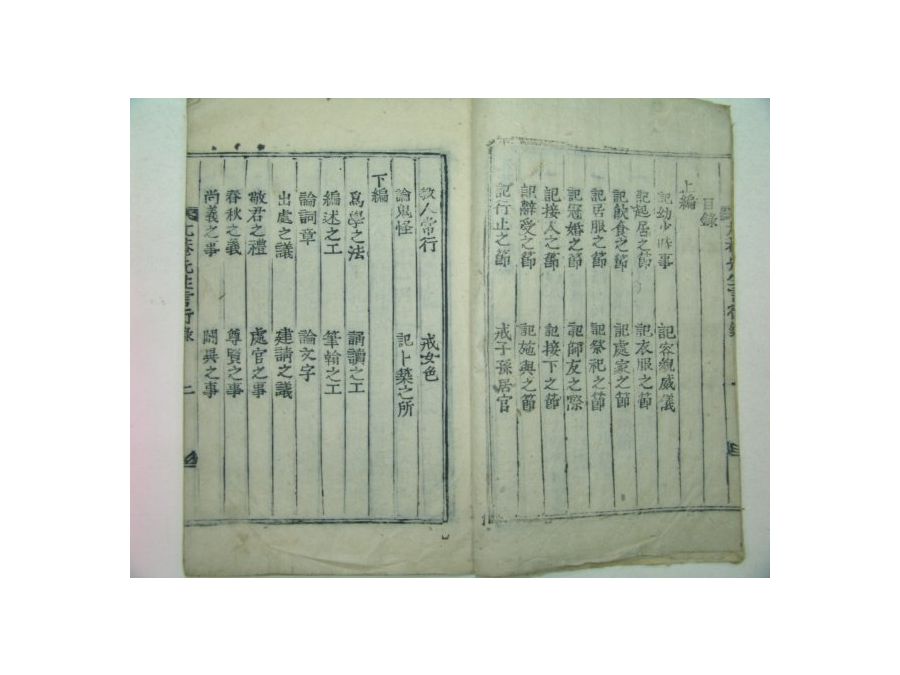 目錄
上編
記幼少時事 記容觀威儀
記起居之節 記衣服之節
記飮食之節 記處家之節
記居服之節 記祭祀之節
記冠婚之節 記師友之際
記接人之節 記接下之節
記辭受之節 記施與之節
記行止之節 戒子孫居官
敎人常行 戒女色
論鬼怪 記卜築之所
下編
爲學之法 誦讀之工
編述之工 筆翰之工
論詞章 論文字
出處之議 建請之議
敬君之禮 處官之事
春秋之義 尊賢之事
尚義之事 闢異之事
先生言行錄 二